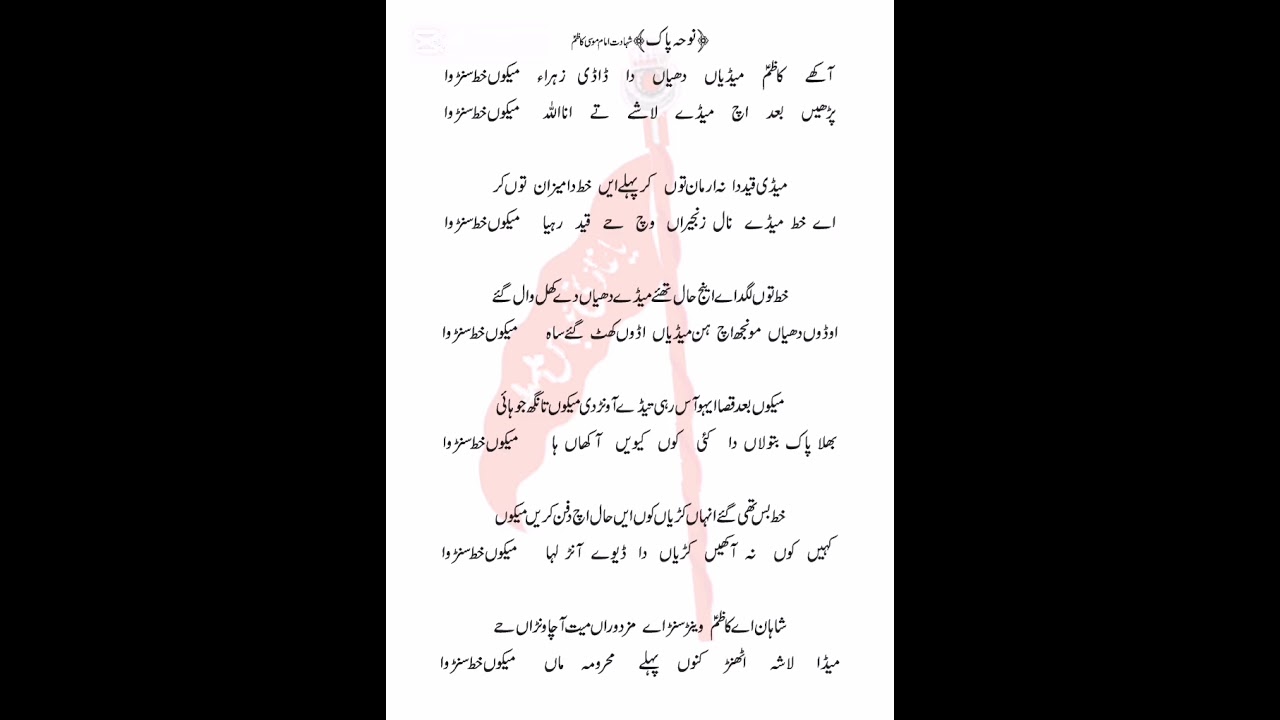 ﴿نوحہ پاک﴾ شہادت امام موسی کاظمؑ
آکھے کاظمؑ میڈیاں دھیاں دا ڈاڈی زہراء میکوں خط سنڑوا
پڑھیں بعد اچ میڈے لاشے تے اناللہ میکوں خط سنڑوا
میڈی قید دا نہ ارمان توں کر پہلے ایں خط دا میزان توں کر
اے خط میڈے نال زنجیراں وچ حے قید رہیا میکوں خط سنڑوا
خط توں لگدا اے اینج حال تھئے میڈے دھیاں دے کھل وال گئے
اوڈوں دھیاں مونجھ اچ ہن میڈیاں اڈوں کھٹ گئے ساہ میکوں خط سنڑوا
میکوں بعد قصا ایہو آس رہی تیڈے آونڑ دی میکوں تانگھ جو ہائی
بھلا پاک بتولاں دا کئی کوں کیویں آکھاں ہا میکوں خط سنڑوا
خط بس تھی گئے انہاں کڑیاں کوں ایں حال اچ دفن کریں میکوں
کہیں کوں نہ آکھیں کڑیاں دا ڈیوے آنڑ لہا میکوں خط سنڑوا
شاہان اے کاظمؑ وینڑ سنڑا اے مزدوراں میت آ چاونڑاں حے
میڈا لاشہ اٹھنڑ کنوں پہلے محرومہ ماں میکوں خط سنڑوا